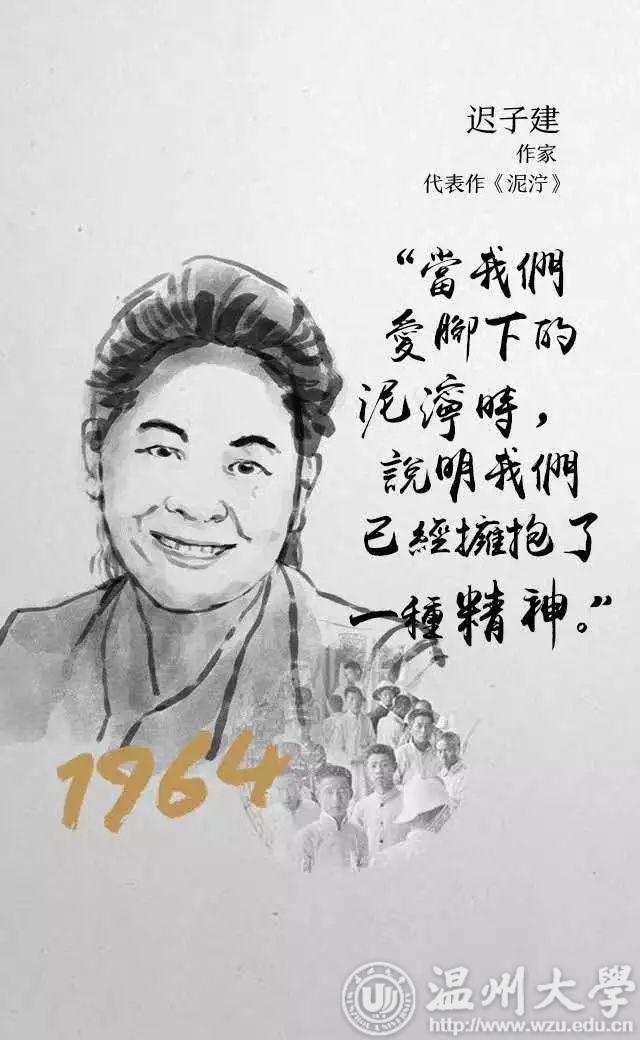 迟子建
作家
代表作《泥泞》
“當我們
愛腳下的
泥濘時，
說明我們
已經擁抱了
一種精神。”
1964
温州大學
http://www.wzu.edu.cn